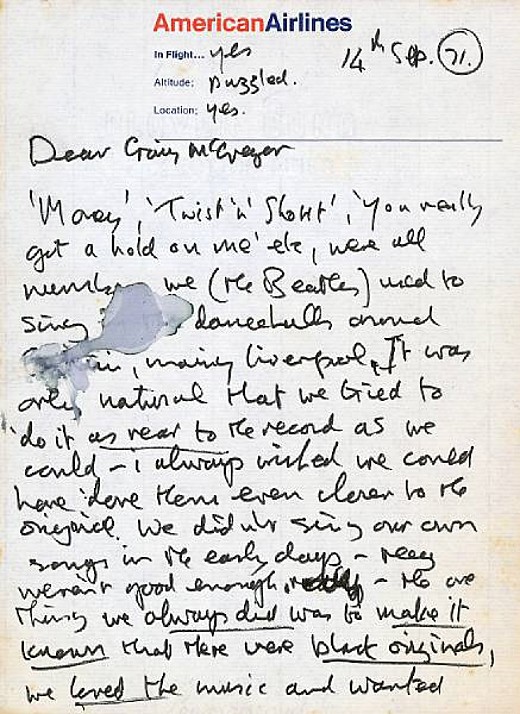 AmericanAirlines
In Flight... yes
14th Sep. 71.
Altitude: puzzled.
Location: yes.
Dear Craig McGregor
'Money', 'Twist 'n' Shout', 'You really
got a hold on me' etc, were all
numbers we (the Beatles) used to
sing dancehalls around
mainly Liverpool. It was
only natural that we tried to
do it as near to the record as we
could – i always wished we could
have done them even closer to the
original. We didn't sing our own
songs in the early days – they
weren't good enough – the one
thing we always did was to make it
known that there were black originals,
we loved the music and wanted